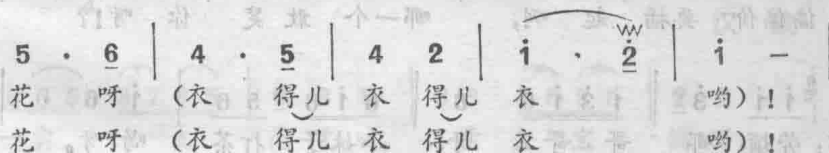 5 · 6 | 4 · 5 | 4 2 | i · 2 | i －
花 呀 (衣 得儿 衣 得儿 衣 哟)!
花 呀 (衣 得儿 衣 得儿 衣 哟)!